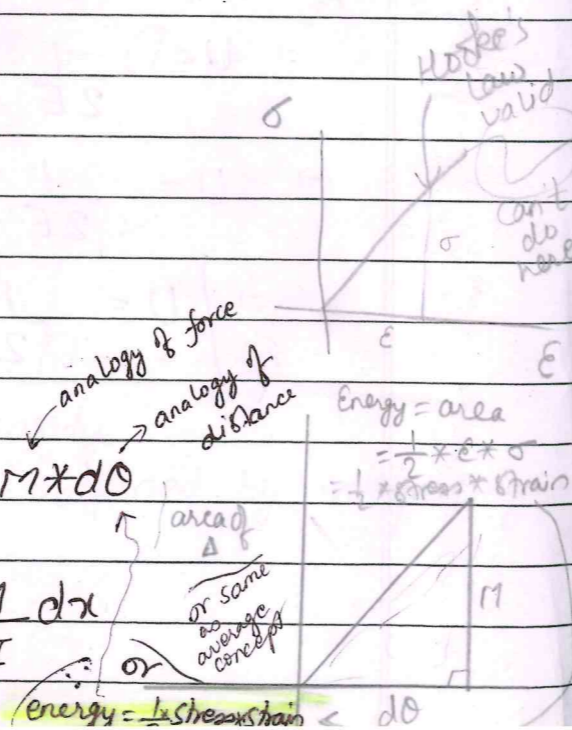 Hooke's
Law
valid
σ
can't
do
here
σ
ε
ε
analogy of force
analogy of
distance
Energy = area
= 1/2 * ε * σ
= 1/2 * stress * strain
M*dθ
area of
Δ
or same
as
average
concept
dx
M
∵
or
energy = 1/2 * stress * strain
dθ